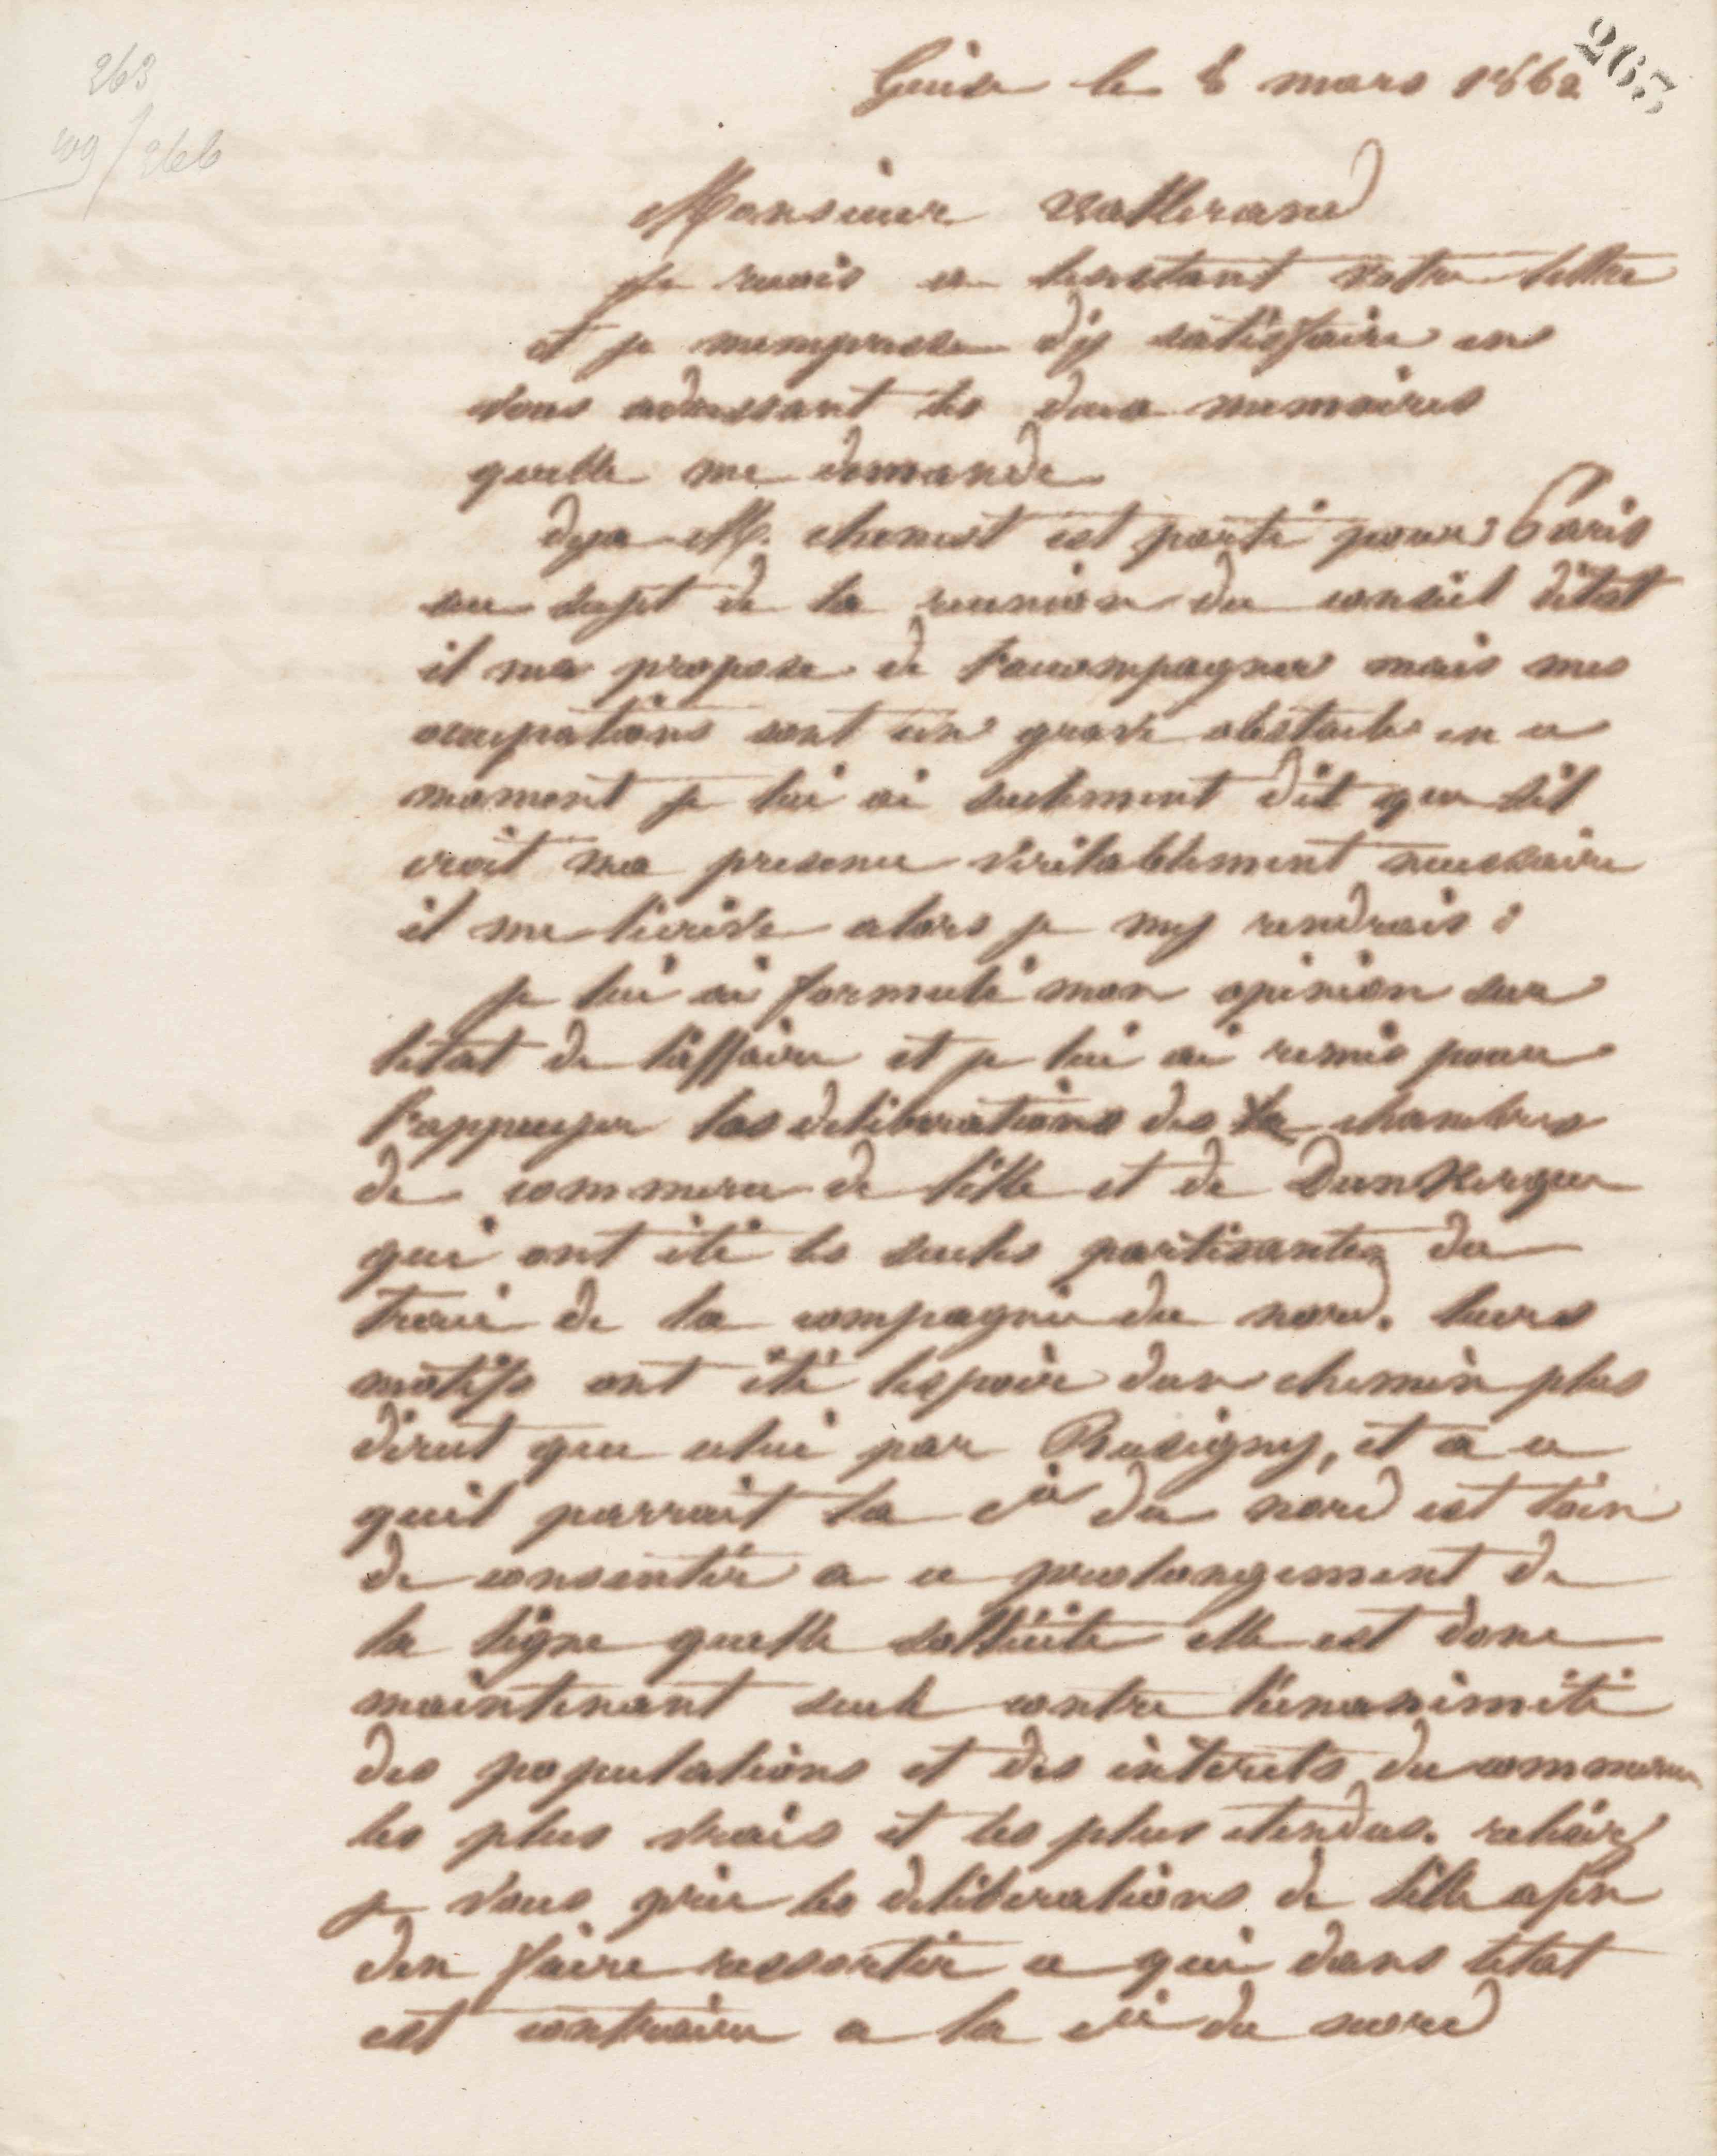 263
265
109/266
Guise le 8 mars 1862
Monsieur Vallerand
Je recois ce linstant votre lettre
et je mempresse d'y satisfaire en
vous adressant les deux memoires
quelle me demande
deja M. chenest est parti pour Paris
au sujet de la reunion du conseil détat
il ma propose de l'accompagner mais mes
occupations sont un grave obstacle en ce
moment je lui ai seulement dit que sil
croit ma presence véritablement necessaire
il me lécrive alors je my rendrais
je lui ai formulé mon opinion sur
letat de l'affaire et je lui ai remis pour
l'appuyer les deliberations des chambres
de commerce de lille et de Dunkerque
qui ont été les seules partisantes du
tracé de la compagnie du nord. leurs
motifs ont été lespoir dun chemin plus
direct que celui par Busigny, et a ce
quil parrait la cie du nord est loin
de consentir a ce prolongement de
la ligne quelle sollicite elle est donc
maintenant seule contre lunanimité
des populations et des intérets du commerce
les plus vrais et les plus etendus. relisez
je vous prie les deliberations de lille afin
den faire ressortir ce qui dans letat
est contraire a la cie du nord